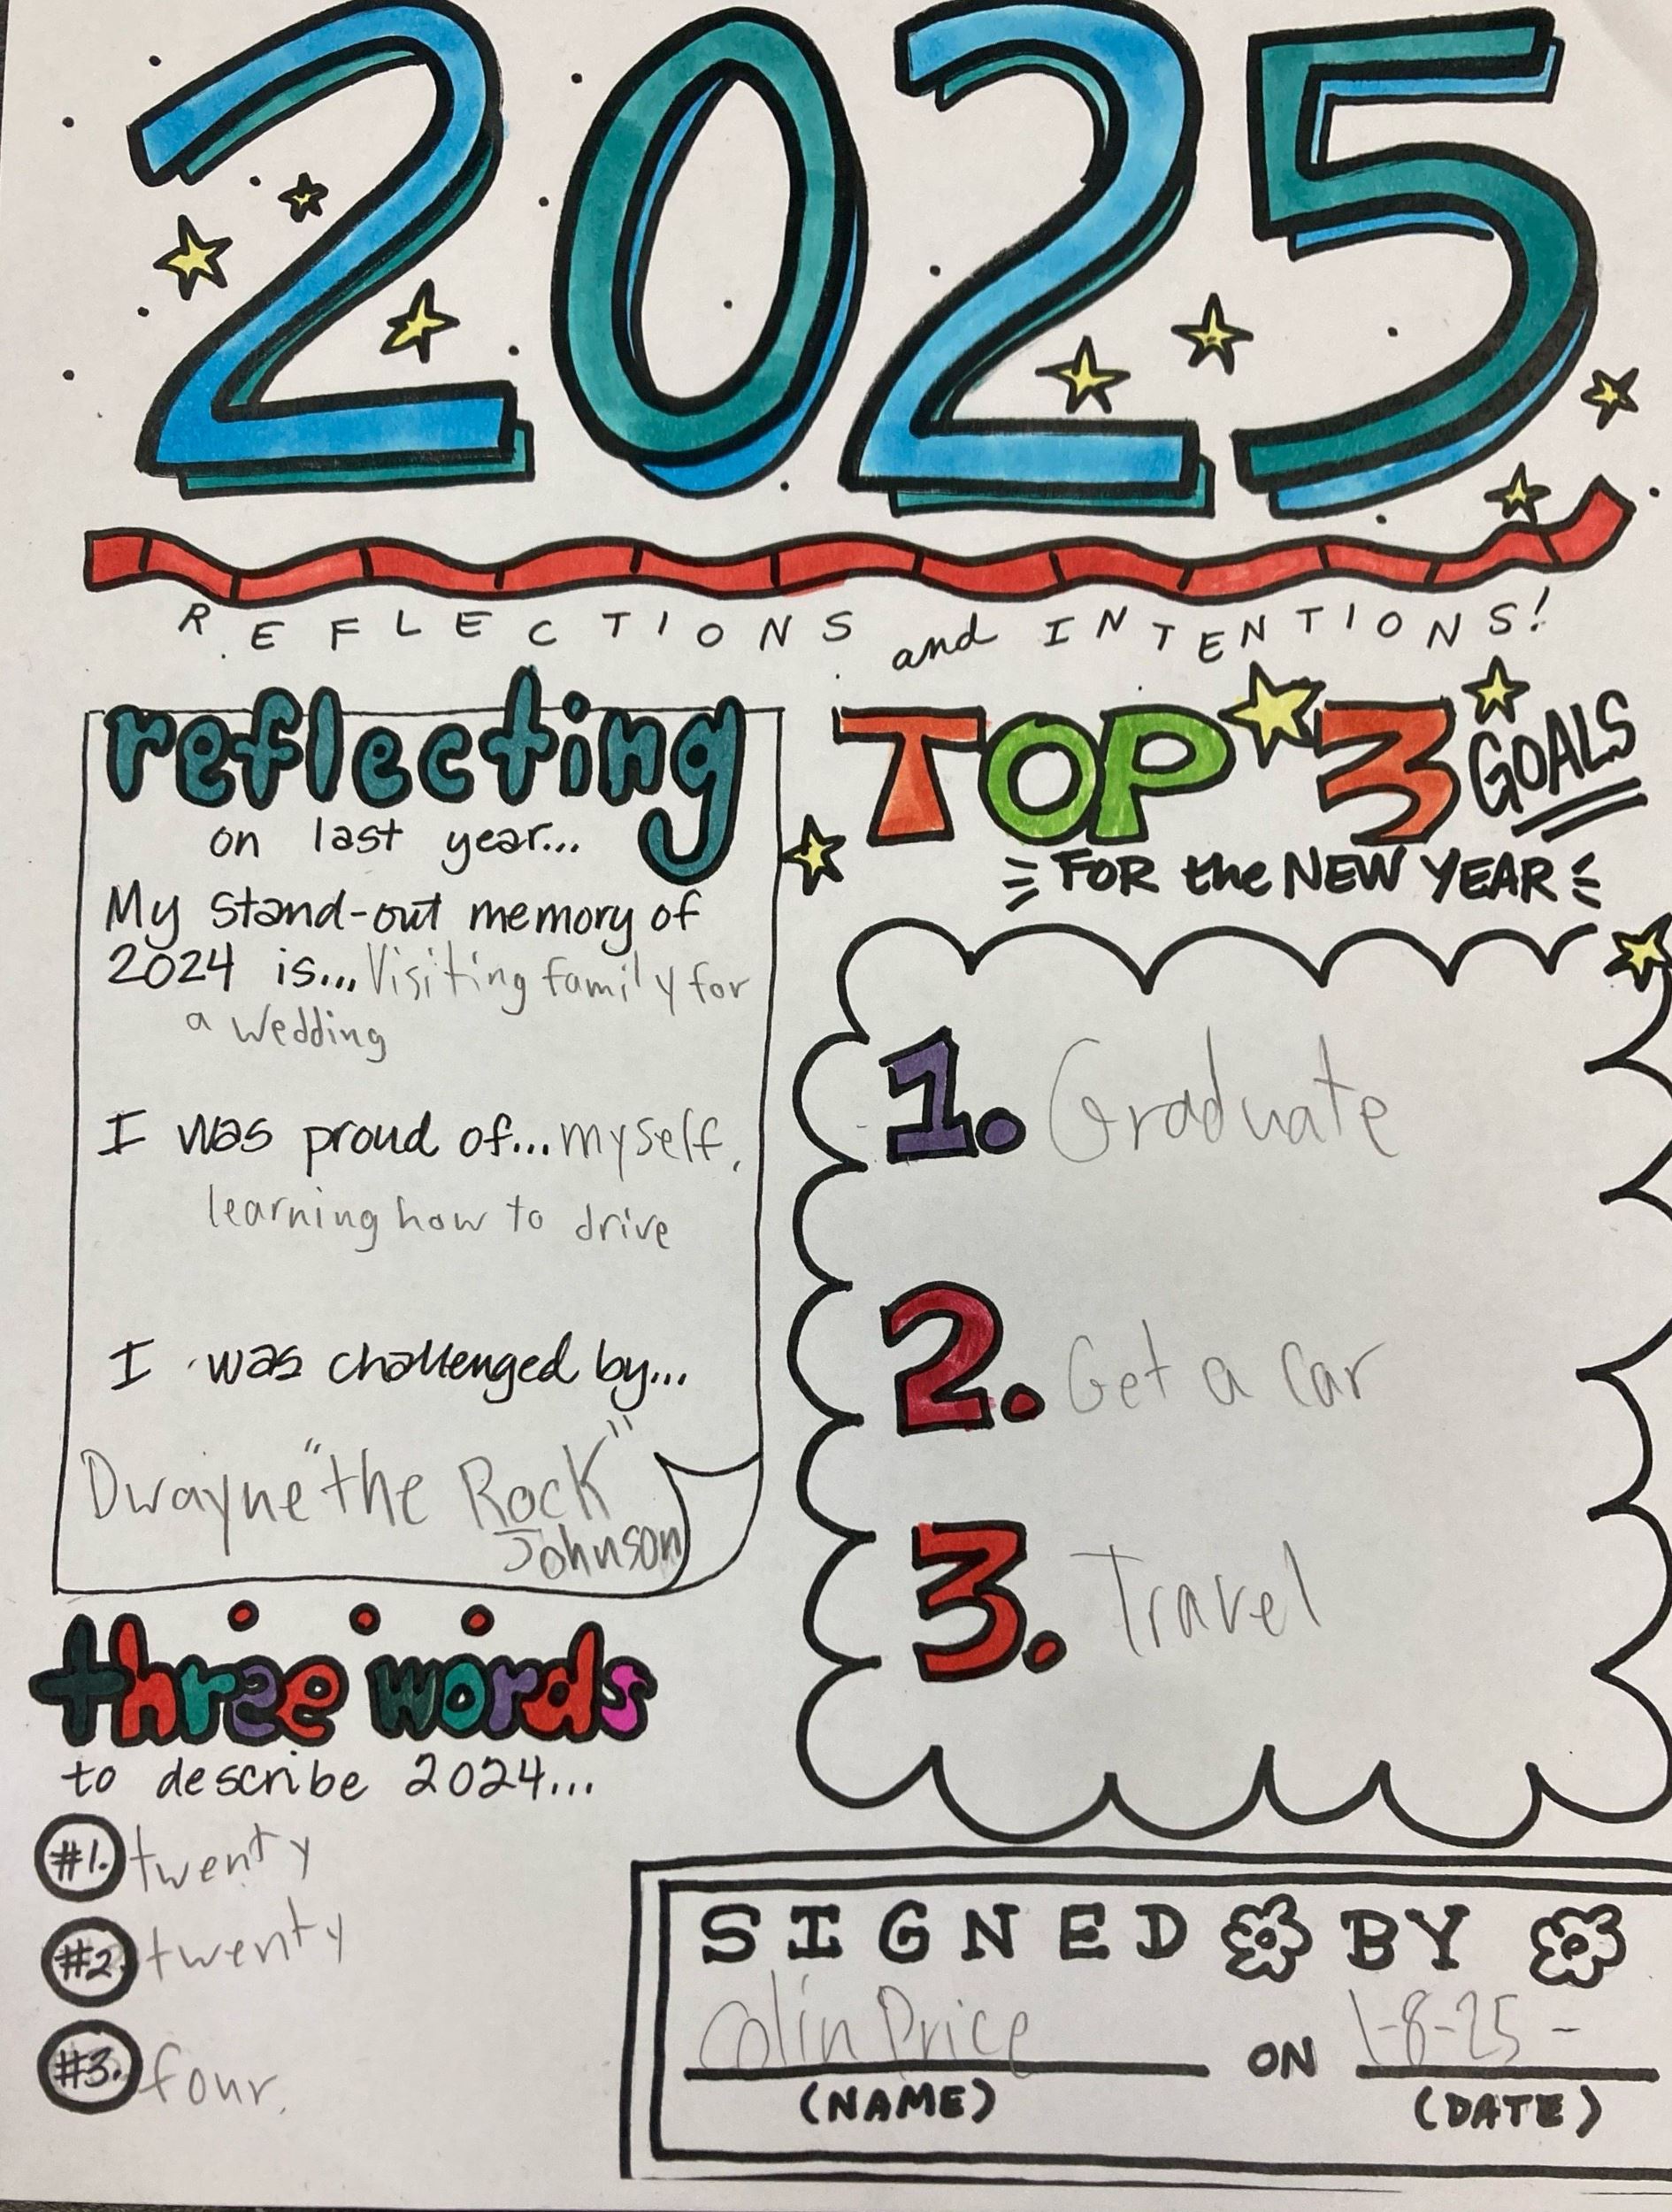 2025
REFLECTIONS and INTENTIONS!
reflecting
on last year...
My stand-out memory of
2024 is... Visiting family for
a wedding
I was proud of... myself,
learning how to drive
I was challenged by...
Dwayne "the Rock"
Johnson
three words
to describe 2024...
#1. twenty
#2. twenty
#3. four.
TOP 3 GOALS
FOR the NEW YEAR
1. Graduate
2. Get a car
3. Travel
SIGNED BY
Colin Price ON 1-8-25-
(NAME) (DATE)